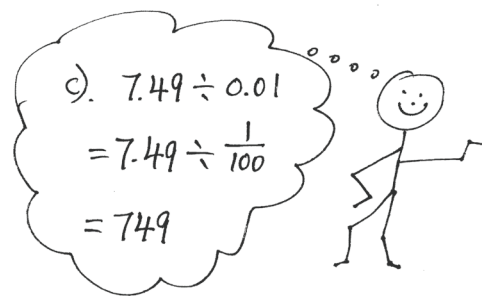 c). 7.49 ÷ 0.01
= 7.49 ÷ 1/100
= 749